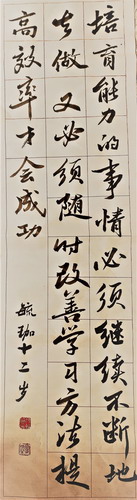 培育能力的事情必须继续不断地
去做又必须随时改善学习方法提
高效率才会成功
毓珈十二岁